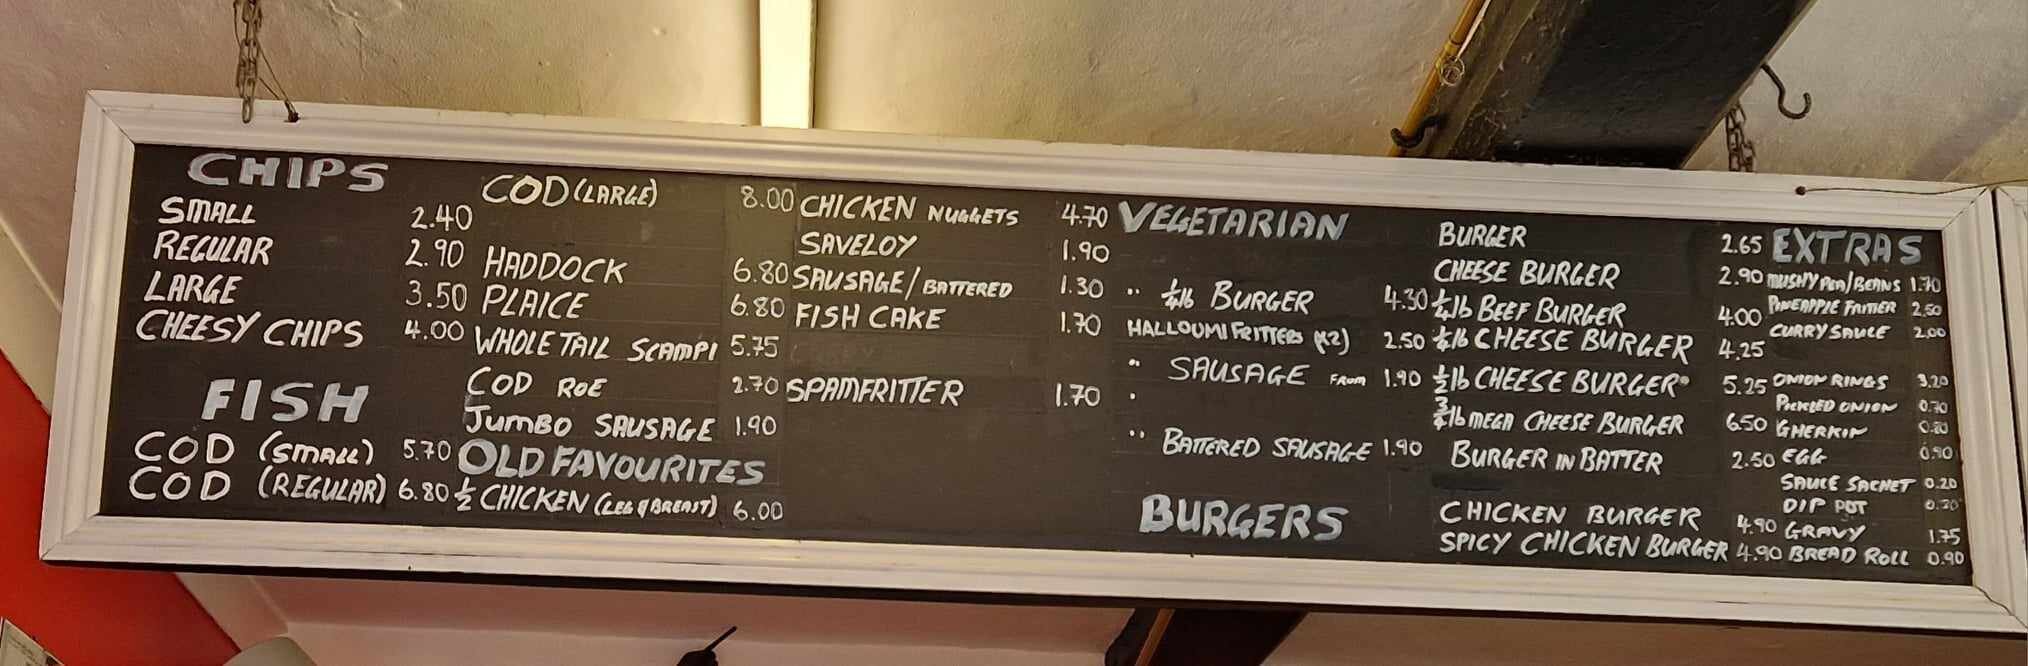 CHIPS
SMALL 2.40
REGULAR 2.90
LARGE 3.50
CHEESY CHIPS 4.00
FISH
COD (SMALL) 5.70
COD (REGULAR) 6.80
COD (LARGE) 8.00
HADDOCK 6.80
PLAICE 6.80
WHOLETAIL SCAMPI 5.75
COD ROE 2.70
JUMBO SAUSAGE 1.90
OLD FAVOURITES
½ CHICKEN (LEG & BREAST) 6.00
CHICKEN NUGGETS 4.70
SAVELOY 1.90
SAUSAGE/BATTERED 1.30
FISH CAKE 1.70
SPAMFRITTER 1.70
VEGETARIAN
" ¼lb BURGER 4.30
HALLOUMI FRITTERS (x2) 2.50
" SAUSAGE FROM 1.90
" BATTERED SAUSAGE 1.90
BURGERS
BURGER 2.65
CHEESE BURGER 2.90
¼lb BEEF BURGER 4.00
¼lb CHEESE BURGER 4.25
½lb CHEESE BURGER 5.25
¾lb MEGA CHEESE BURGER 6.50
BURGER IN BATTER 2.50
CHICKEN BURGER 4.90
SPICY CHICKEN BURGER 4.90
EXTRAS
MUSHY PEA/BEANS 1.70
PINEAPPLE FRITTER 2.50
CURRY SAUCE 2.00
ONION RINGS 3.20
PICKLED ONION 0.70
GHERKIN 0.80
EGG 0.90
SAUCE SACHET 0.20
DIP POT
GRAVY 1.75
BREAD ROLL 0.90